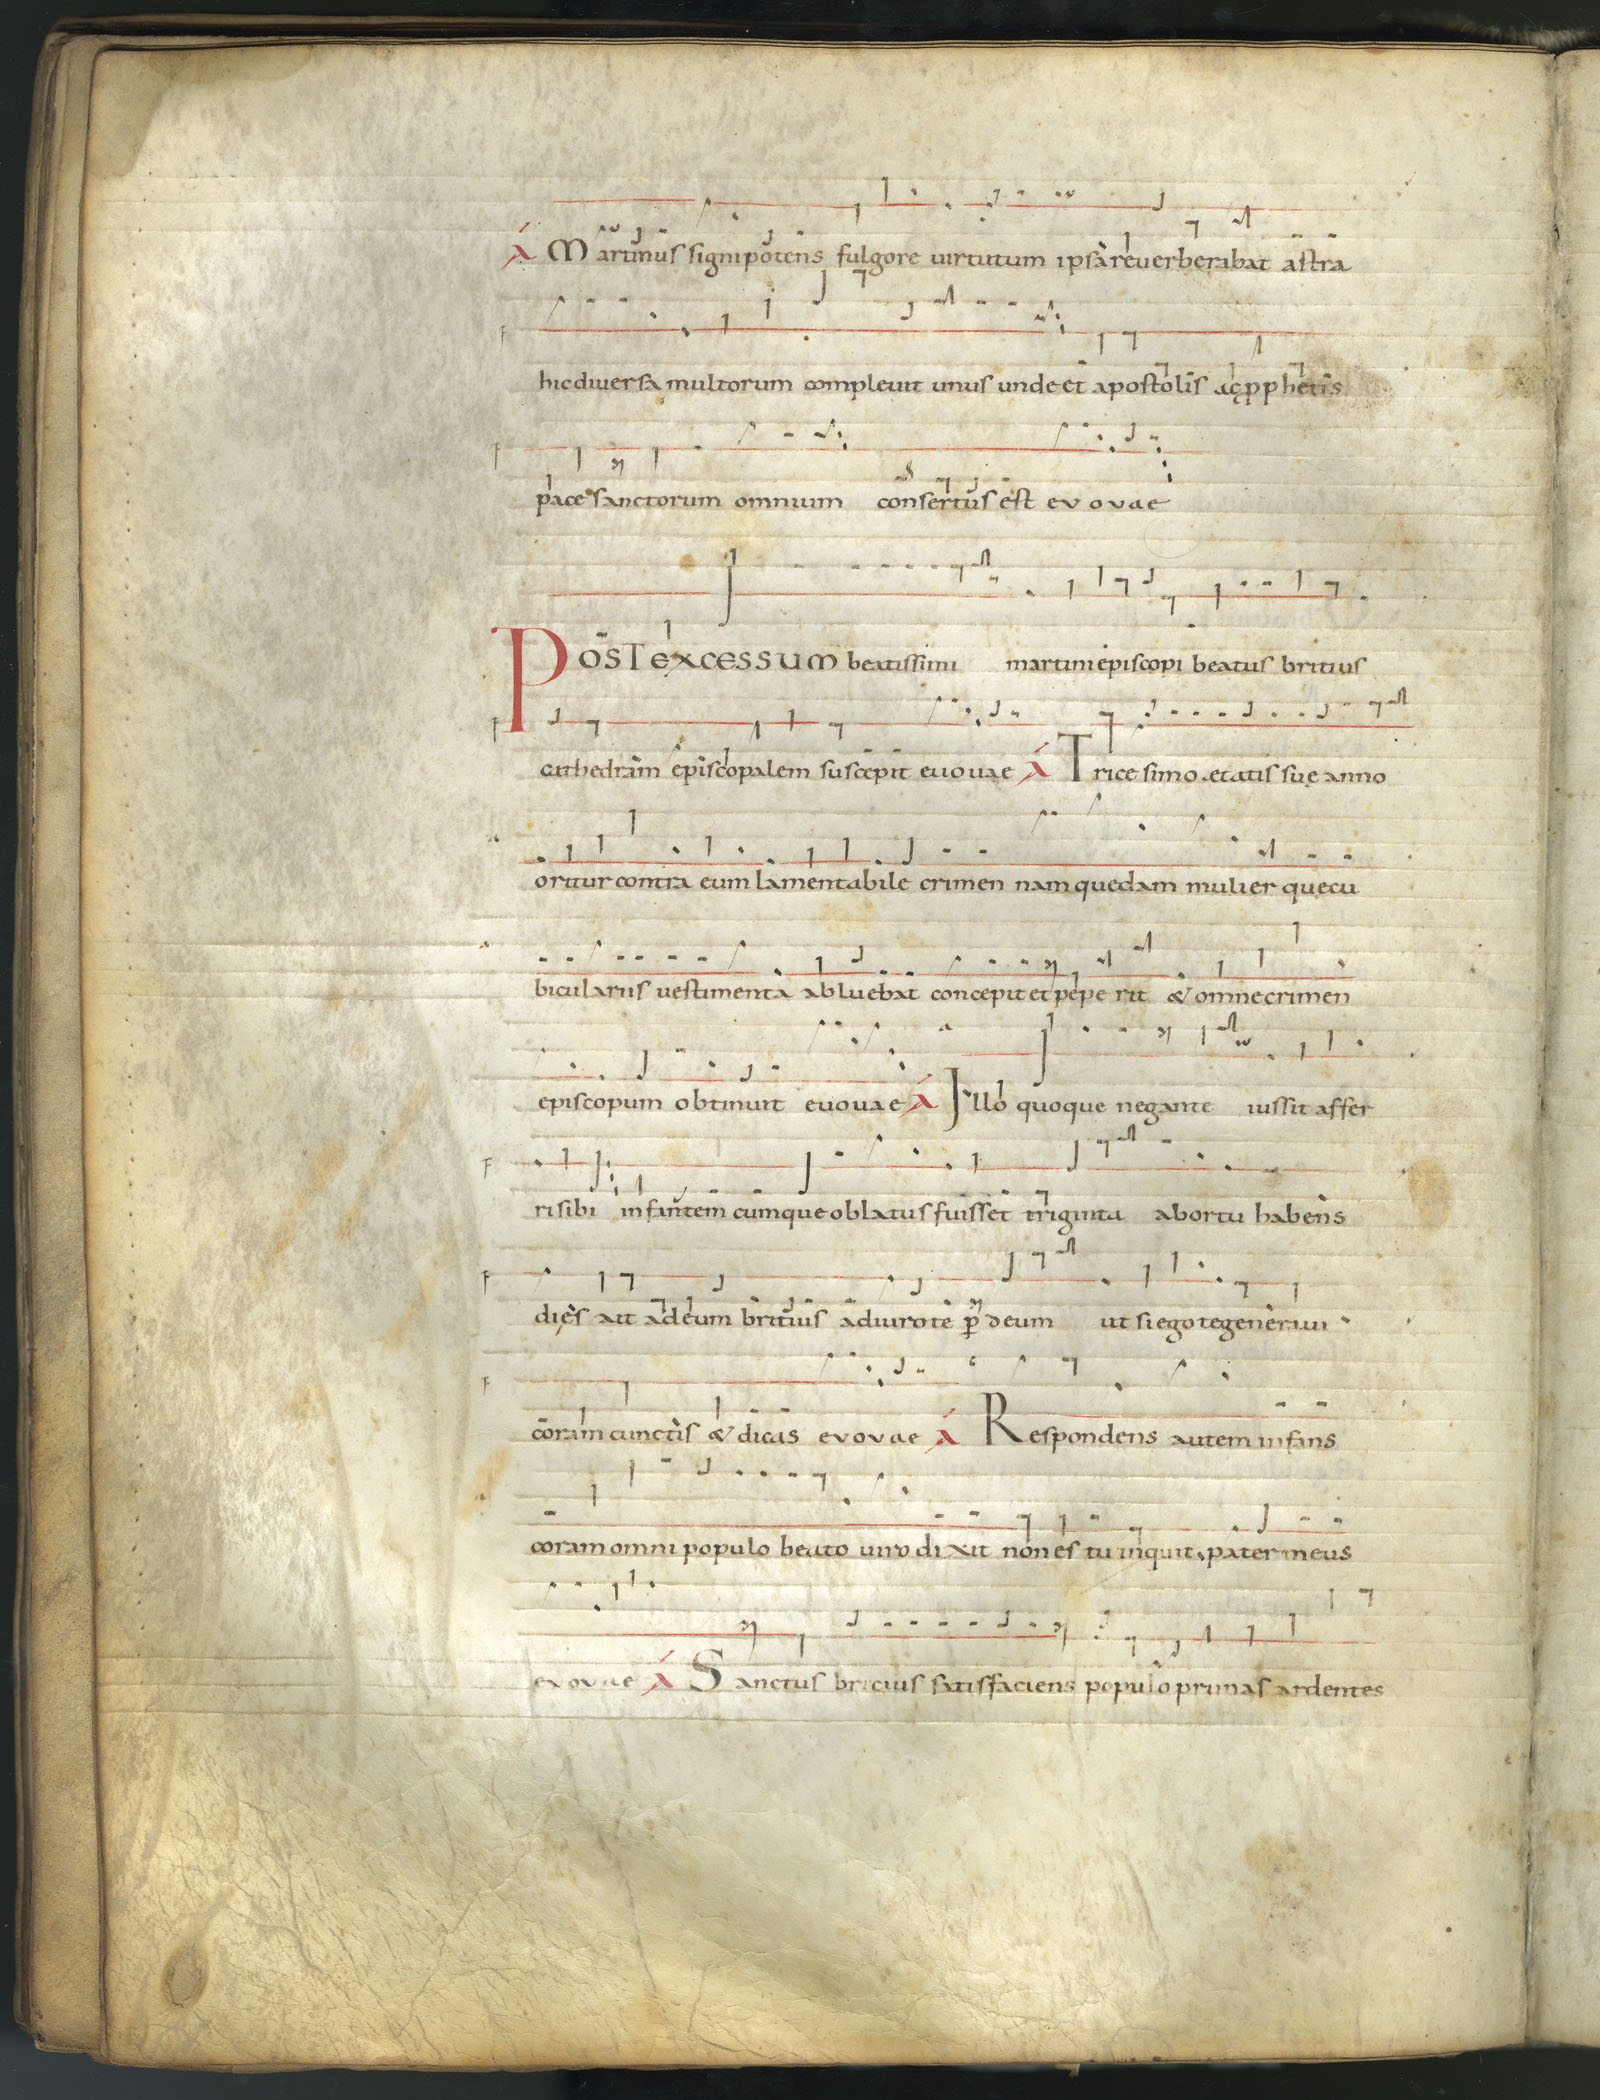 A Martinus signipotens fulgore virtutum ipsa reuerberabat astra
hic diuersa multorum compleuit unus unde et apostolis ac pphetis
pace sanctorum omnium consertus est evovae
Post excessum beatissimi martini episcopi beatus britius
cathedram episcopalem suscepit euouae A Tricesimo etatis suę anno
oritur contra eum lamentabile crimen nam quedam mulier que cu
bicularius uestimenta abluebat concepit et peperit & omne crimen
episcopum obtinuit euouae A Illo quoque negante iussit affer
ri sibi infantem cumque oblatus fuisset triginta ab ortu habens
dies ait ad eum britius adiuro te p deum ut si ego te generaui
coram cunctis & dicas evovae A Respondens autem infans
coram omni populo beato uiro dixit non es tu inquit pater meus
evovae A Sanctus bricius satisfaciens populo prunas ardentes